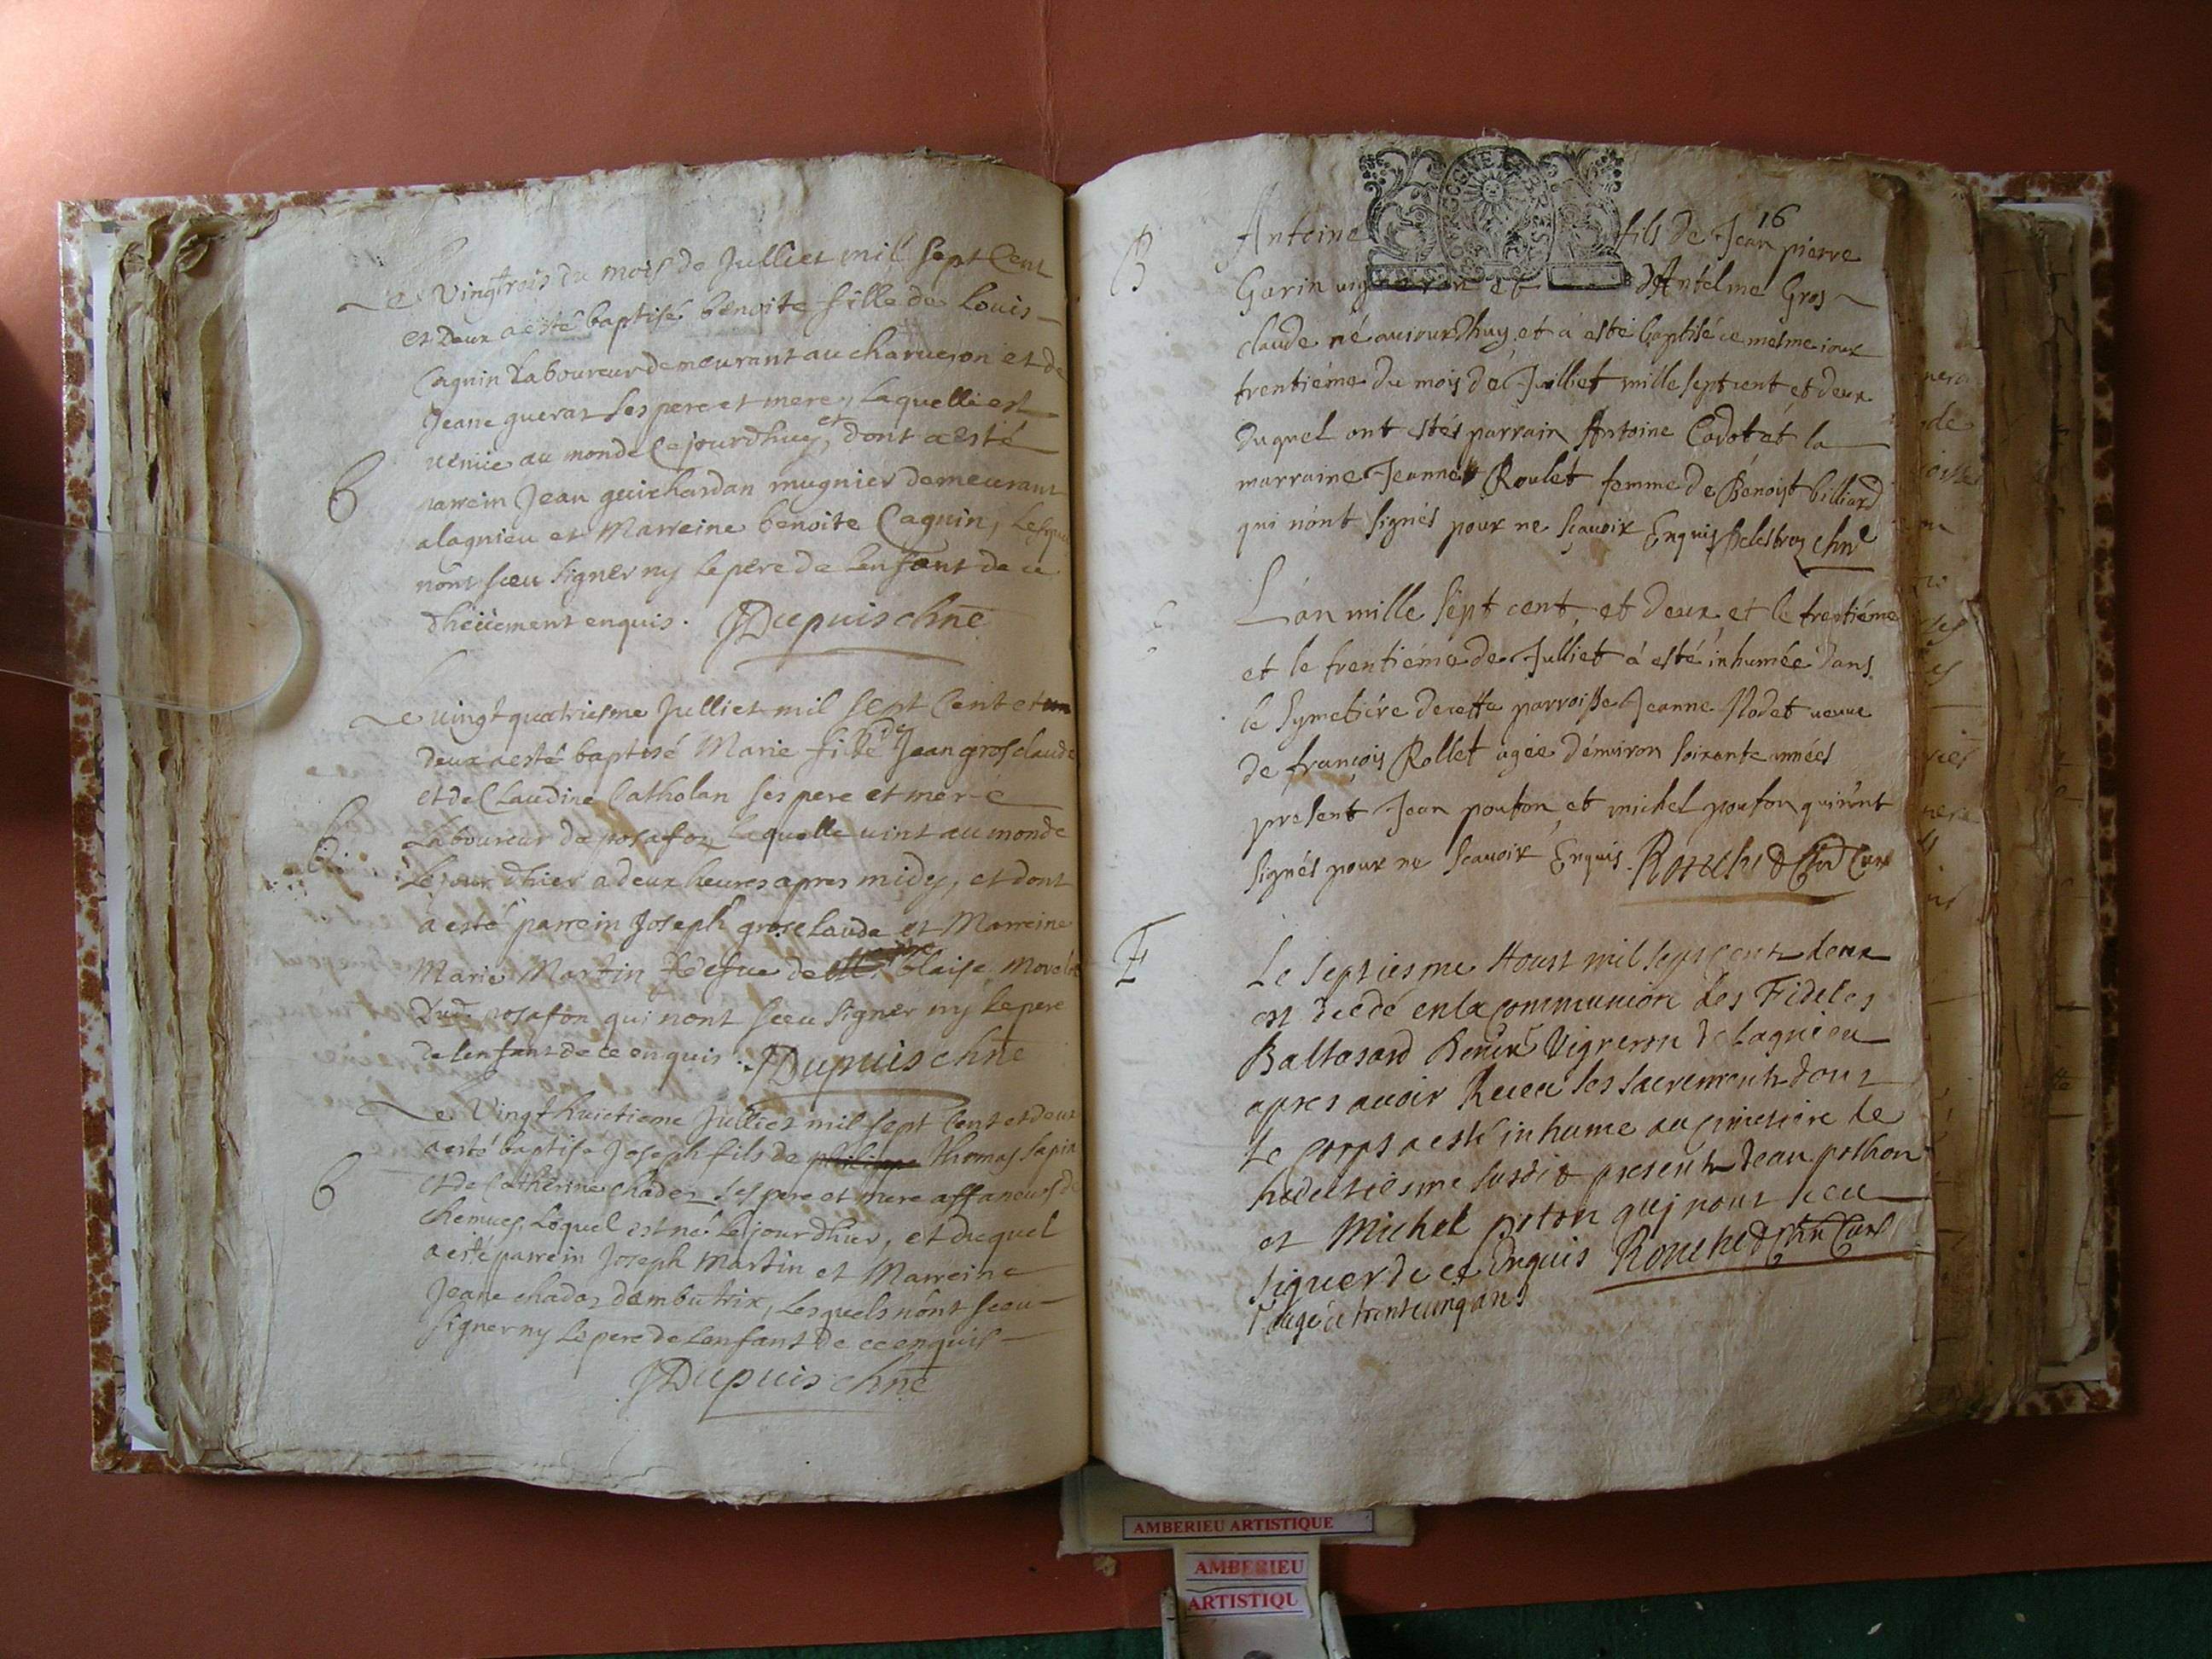 Le vingtrois du mois de Julliet mil sept Cent
et Deux a esté baptisé benoite fille de Louis
Cagnin Laboureur demeurant au charveron et de
Jeane guerat ses pere et mere, laquelle est
venüe au monde Cejourdhuy, et dont a esté
B
parrein Jean guichardan mugnier demeurant
a lagnieu et Marreine benoite Cagnin, Lesquels
nônt sceu signer ny le pere de Lenfant de ce
dheüement enquis. JDupuis chne
Le vingt quatriesme Julliet mil sept Cent et un
deux a esté baptisé Marie fille de Jean grosclaude
et de Claudine Catholan ses pere et mere
B
Laboureur de posafon Laquelle vint au monde
Le jour dhier a deux heures apres midy, et dont
a esté parrein Joseph groselaude et Marreine
Marie Martin de blaise
Dud. posafon qui nont sceu signer ny le pere
de lenfant de ce enquis. JDupuis chne
Le Vingt huictieme Julliet mil sept Cent et deux
a esté baptise Joseph fils de philippe thomas sapin
B
et de Catherine chadez ses pere et mere affaneurs de
Lequel est né le jour dhier, et duquel
a esté parrein Joseph Martin et Marreine
Jeane chadez dambutrix, Lesquels nônt sceu
signer ny Le pere de Lenfant de ce enquis
JDupuis chne
16
B
Antoine fils de Jean pierre
Garin vigneron et dAntelme Gros
claude né aujourdhuy et á esté baptisé ce mesme jour
trentiéme du mois de Juilliet mille sept cent et deux
duquel ont estés parrain Antoine Cadot et la
marraine Jeanne Roulet femme de Benoist billiard
qui n'ont signés pour ne sçavoir Enquis Delestraz chne
L'an mille sept cent, et deux et le trentiéme
et le trentiéme de Julliet á esté inhumée dans
le symetiére de cette parroisse Jeanne Nodet veuve
de françois Rollet agée d'environ soixante années
present Jean pouton et michel pouton qui n'ont
signés pour ne sçavoir Enquis. Rouche Chne Curé
E
Le septiesme Aoust mil sept cent deux
est decedé en la communion des Fideles
Baltasard Vigneron de Lagnieu
apres avoir Receu ses sacrements dont
le corps a esté inhume au cimetiere le
susdit presents Jean pothon
et Michel poton quj nont sceu
signer de ce Enquis Rouche Chne Curé
agé de trente cinq ans
AMBERIEU ARTISTIQUE
AMBERIEU
ARTISTIQU